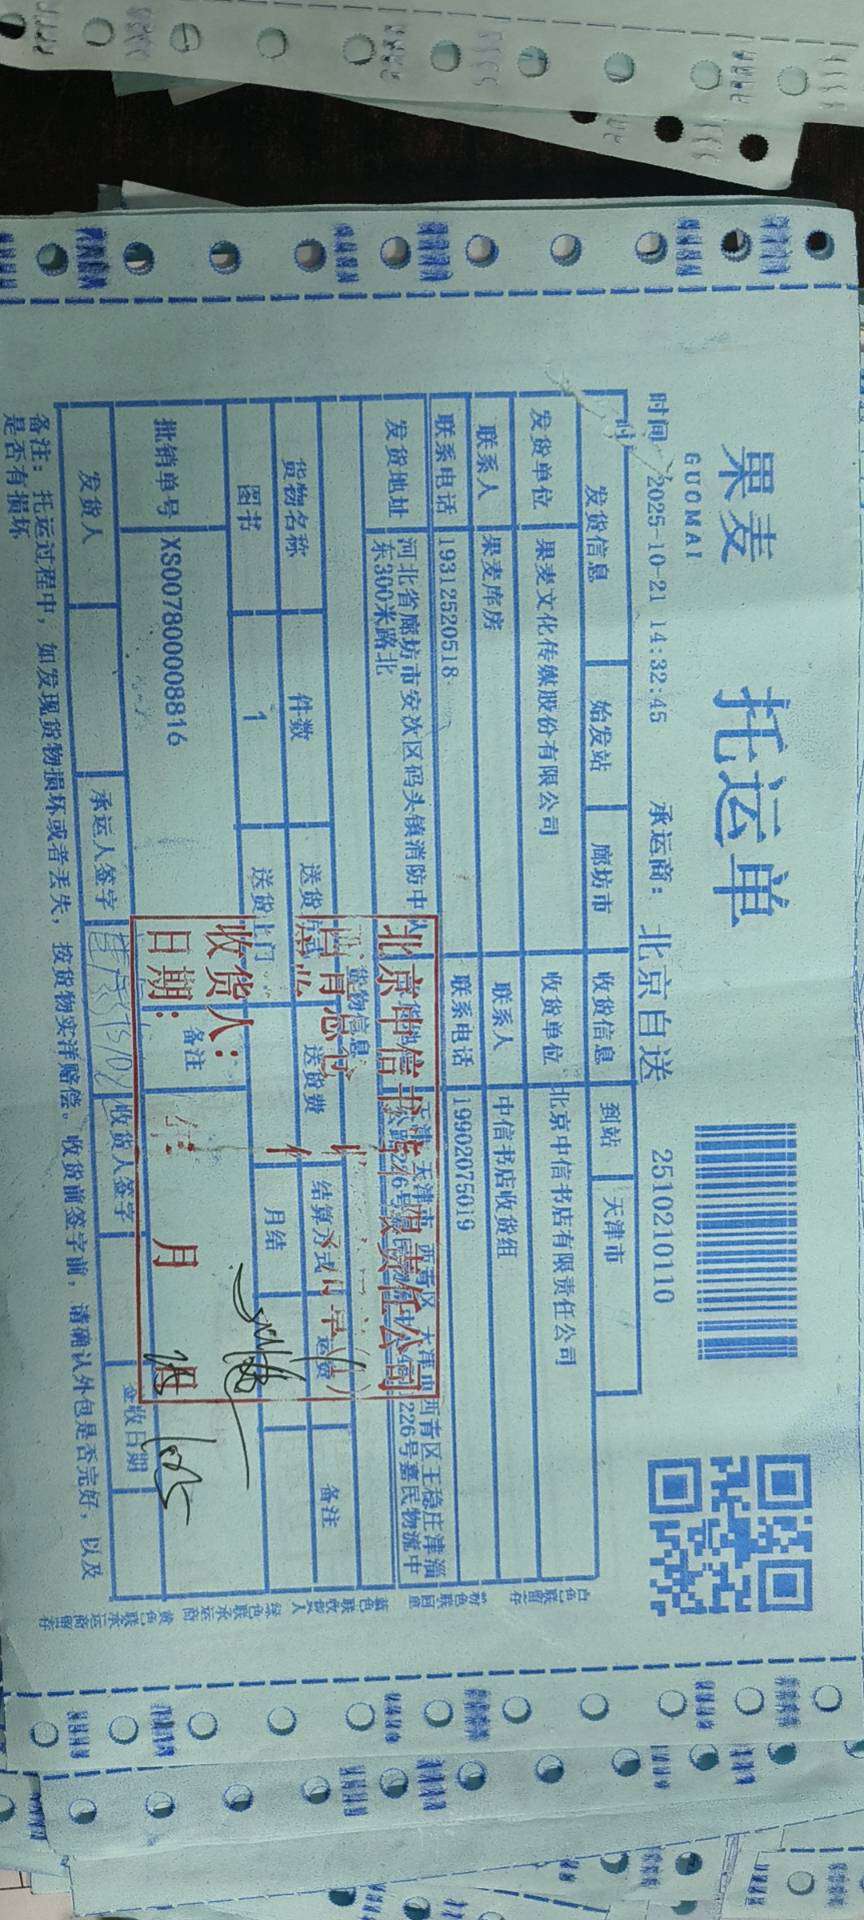 果麦
GUOMAI
托运单
时间 2025-10-21 14:32:45 承运商: 北京自送 2510210110
发货信息 始发站 廊坊市 收货信息 到站 天津市
发货单位 果麦文化传媒股份有限公司 收货单位 北京中信书店有限责任公司
联系人 果麦库房 联系人 中信书店收货组
联系电话 19312520518 联系电话 19902075019
发货地址 河北省廊坊市安次区码头镇消防中
东300米路北
天津 天津市 西青区 天津市西青区王稳庄津淄
226号嘉民物流中
货物信息
货物名称 件数 送货 送货费 结算方式 运费 备注
图书 1 送货上门 月结
批销单号 XS007800008816 备注
发货人 承运人签字 收货人签字 签收日期
备注: 托运过程中, 如发现货物损坏或者丢失, 按货物实洋赔偿。收货前签字前, 请确认外包是否完好, 以及
是否有损坏
北京中信书店有限责任公司
收货人:
日期: 年 月 日
白色联留存 粉色联回单 蓝色联收货人 绿色联承运商 黄色联承运商留存